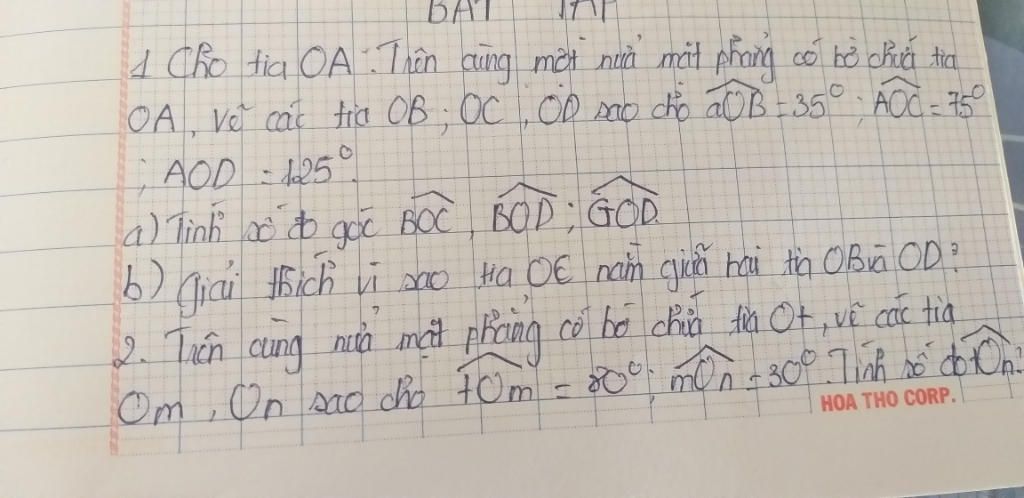 BÀI TẬP
1 Cho tia OA. Trên cùng một nửa mặt phẳng có bờ chứa tia
OA, vẽ các tia OB; OC, OD sao cho aOB = 35°; AOC = 75°
; AOD = 125°.
a) Tính số đo góc BOC, BOD; GOD
b) giải thích vì sao tia OC nằm giữa hai tia OB và OD?
2. Trên cùng nửa mặt phẳng có bờ chứa tia Ot, vẽ các tia
Om, On sao cho tOm = 80°; mOn = 30°. Tính số đo tOn?
HOA THO CORP.